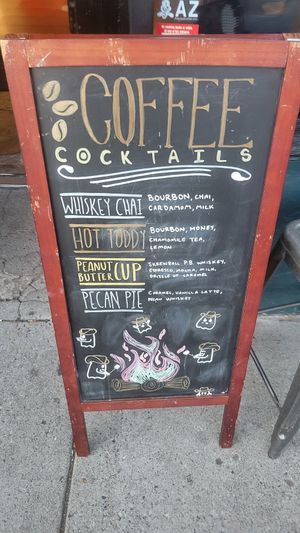 AZ
COFFEE
COCKTAILS
WHISKEY CHAI
BOURBON, CHAI,
CARDAMOM, MILK
HOT TODDY
BOURBON, HONEY,
CHAMOMILE TEA,
LEMON
PEANUT BUTTER CUP
SKREWBALL P.B. WHISKEY,
ESPRESSO, MOCHA, MILK,
DRIZZLE OF CARAMEL
PECAN PIE
CARAMEL, VANILLA LATTE,
WHISKEY